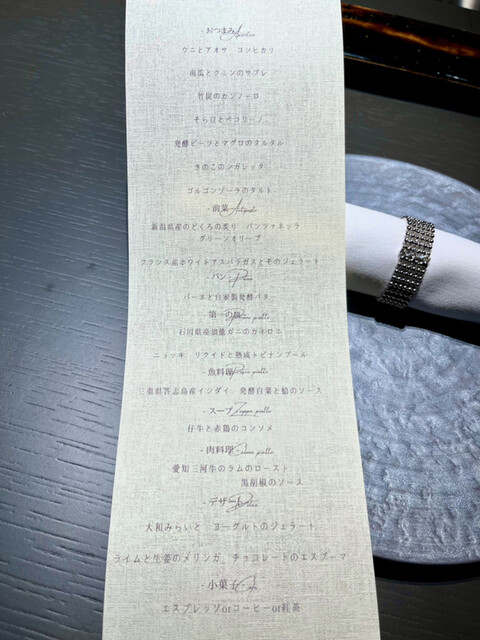 ・おつまみ
ウニとアオサ コシヒカリ
南瓜とクミンのサブレ
竹炭のカンノーロ
そら豆とペコリーノ
発酵ビーツとマグロのタルタル
きのこのシガレッタ
ゴルゴンゾーラのタルト
・前菜 Antipasto
新潟県産のどくろの炙り パンツァネッラ
グリーンオリーブ
フランス産ホワイトアスパラガスとそのジェラート
パン
パーネと自家製発酵バタ
第一の皿 piatto
石川県産加能ガニのカネロニ
ニョッキ リクイドと熟成トピナンブール
・魚料理 piatto
三重県答志島産イシダイ 発酵白菜と蛤のソース
・スープ Zuppa piatto
仔牛と赤鶏のコンソメ
・肉料理 piatto
愛知三河牛のラムのロースト
黒胡椒のソース
・デザート
大和みらいと ヨーグルトのジェラート
ライムと生姜のメリンガ、チョコレートのエスプーマ
・小菓子・
エスプレッソorコーヒーor紅茶